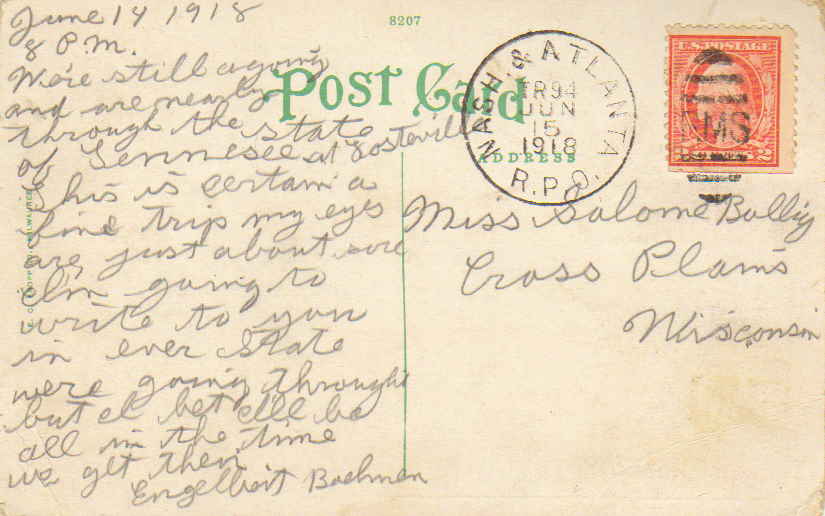 June 14 1918
8 P.M.
We're still agoing
and are nearly
through the state
of Tennesee at
This is certain a
fine trip my eyes
are just about sore
I'm going to
write to you
in ever state
were going throught
but I bet I'll be
all in the time
we get there
Engelbert Bachman
8207
Post Card
ADDRESS
NASH. & ATLANTA. R.P.O.
TR94
JUN
15
1918
U.S. POSTAGE
2 2
RMS
Miss Salome Bollig
Cross Plains
Wisconsin